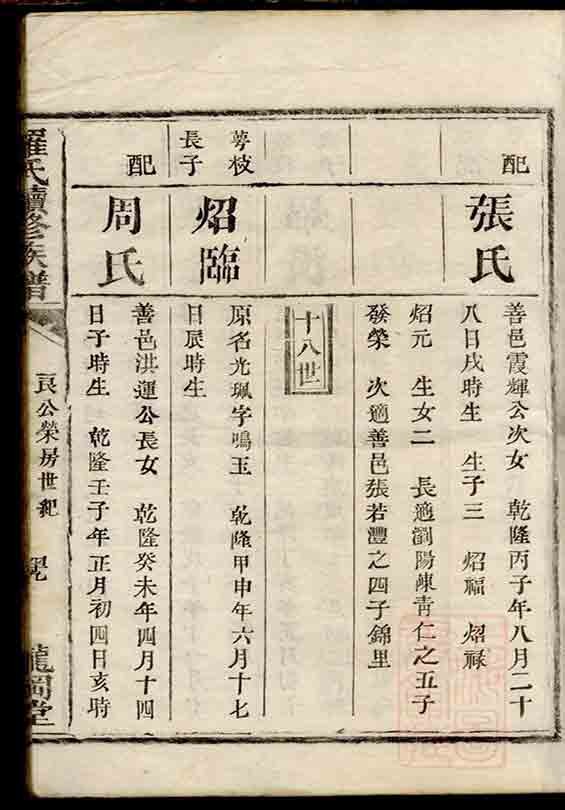 配
張氏
善邑霞輝公次女　乾隆丙子年八月二十
八日戌時生　生子三　炤福　炤祿
炤元　生女二　長適瀏陽陳青仁之五子
發榮　次適善邑張若灃之四子錦里
十八世
蕚枝
長子
炤臨
原名光珮字鳴玉　乾隆甲申年六月十七
日辰時生
配
周氏
善邑洪運公長女　乾隆癸未年四月十四
日子時生　乾隆壬子年正月初四日亥時
羅氏續修族譜
良公榮房世紀
龍岡堂